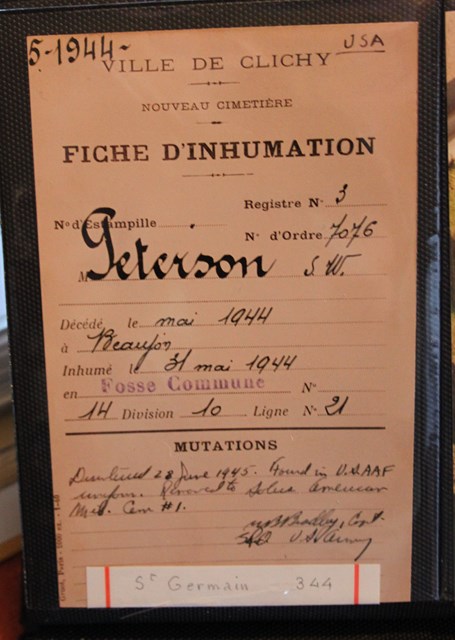 5-1944-
USA
VILLE DE CLICHY
NOUVEAU CIMETIÈRE
FICHE D'INHUMATION
Registre N° 3
N° d'Estampille
N° d'Ordre 7076
M Peterson S. W.
Décédé le mai 1944
à Beaujon
Inhumé le 31 mai 1944
en Fosse Commune N°
14 Division 10 Ligne N° 21
MUTATIONS
Disinterred 28 June 1945. Found in U.S.AAF
uniform. Removed to Solers American
Mil. Cem #1.
Bradley, Capt.
U.S. Army
St Germain 344